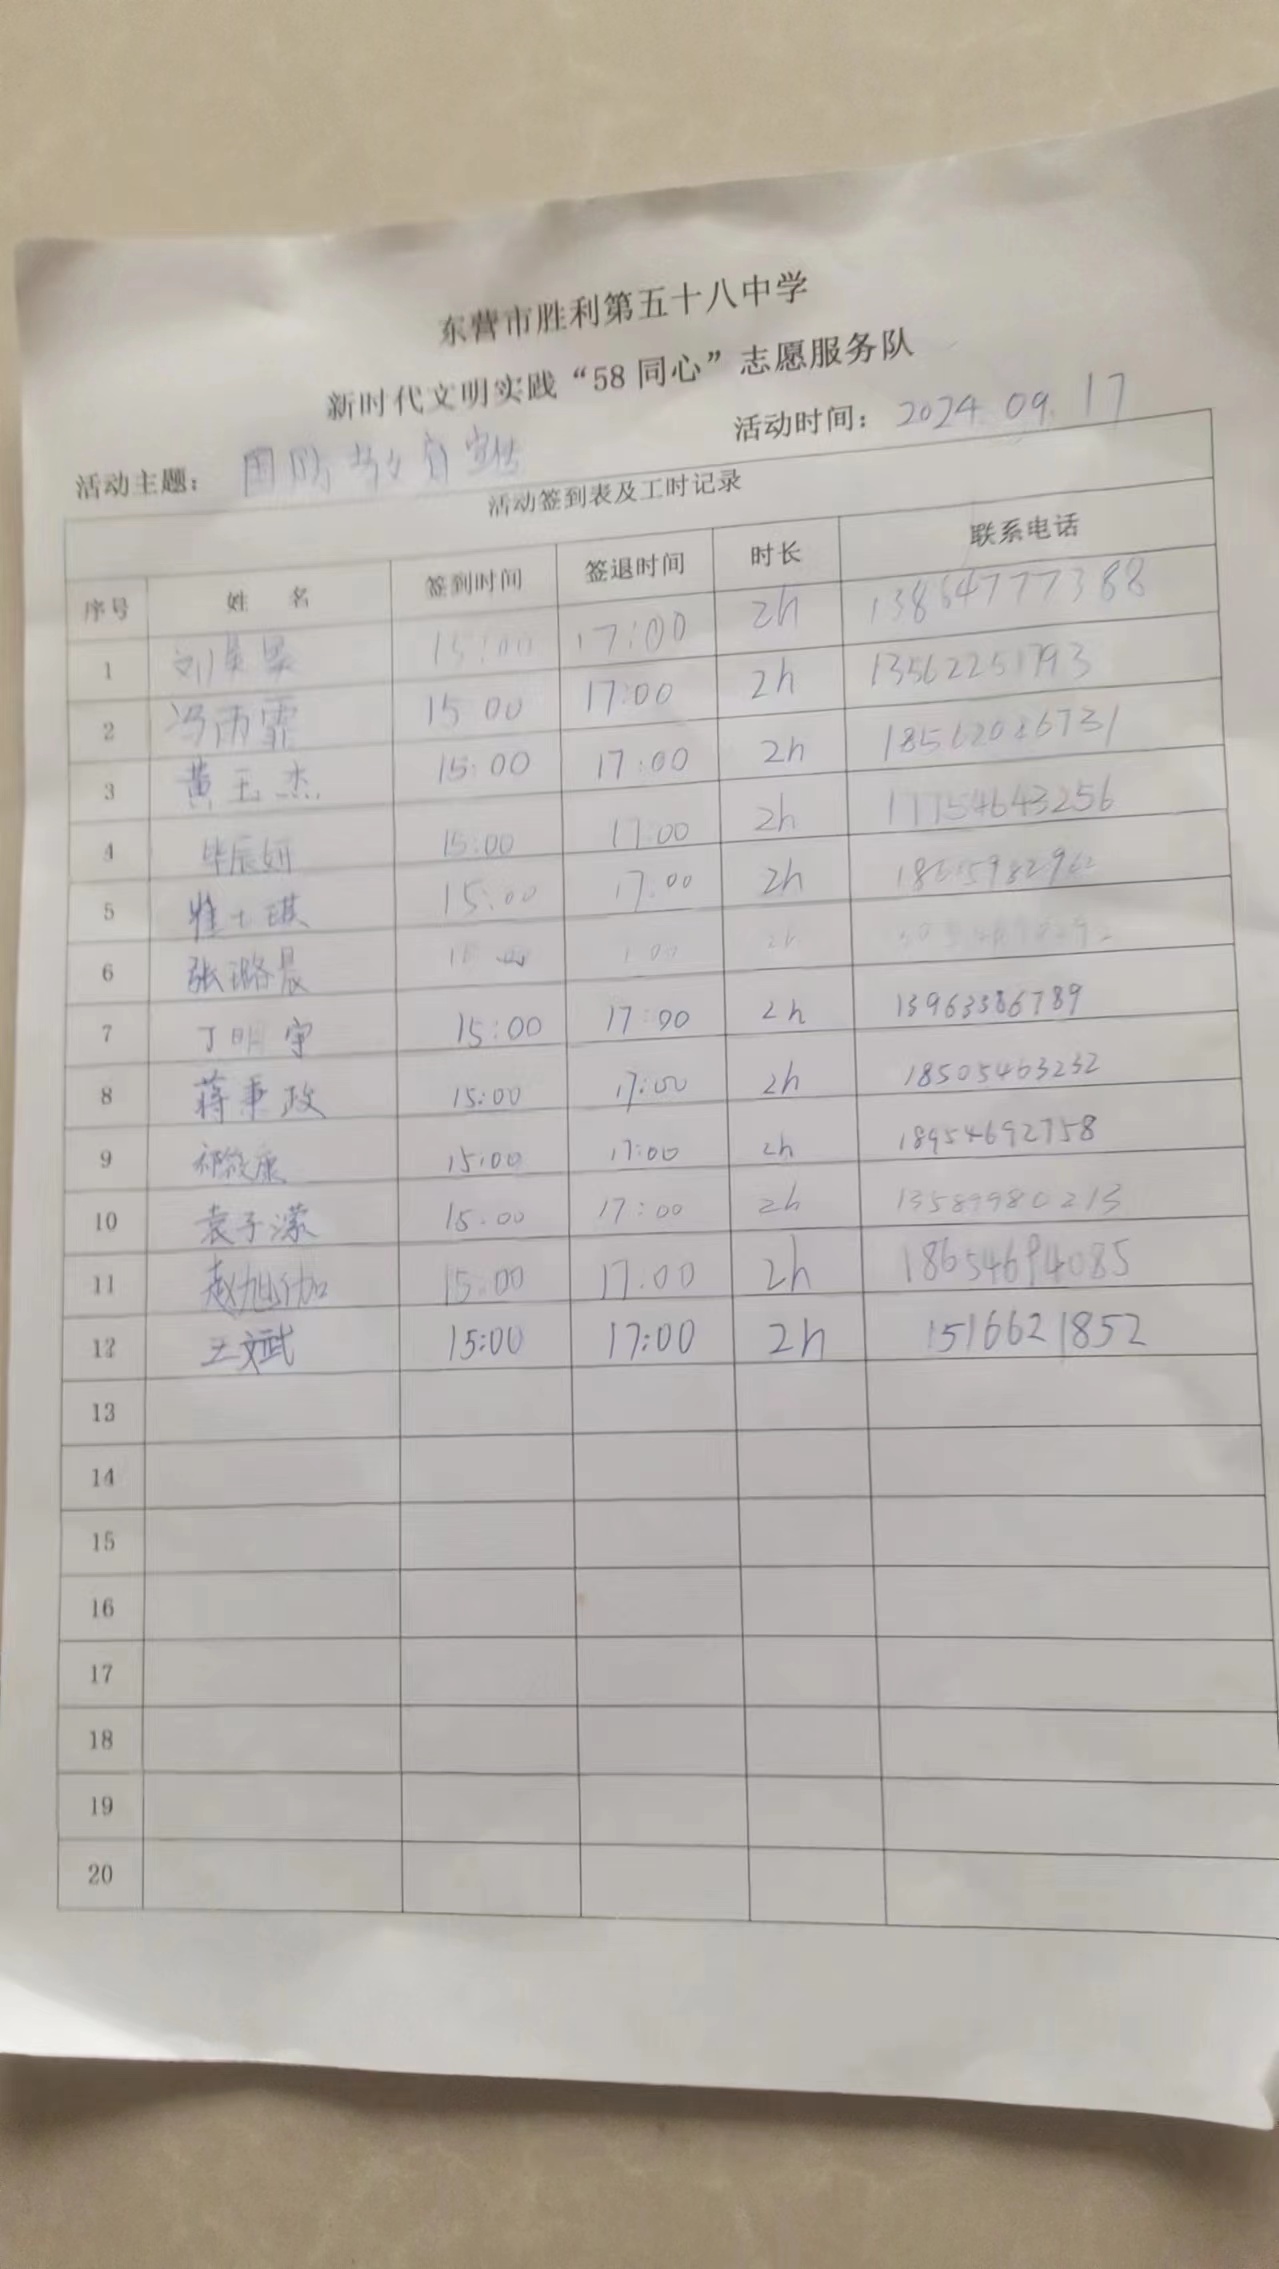 东营市胜利第五十八中学
新时代文明实践“58同心”志愿服务队
活动主题： 国防教育宣传 活动时间：2024.09.17
活动签到表及工时记录
序号 姓 名 签到时间 签退时间 时长 联系电话
1 15:00 17:00 2h 13864777388
2 冯雨霏 15 00 17:00 2h 13562251793
3 黄玉杰 15:00 17:00 2h
4 毕辰妍 15:00 17:00 2h 17754643256
5 15:00 17.00 2h
6 张璐晨 2h
7 丁明宇 15:00 17:00 2h 13963386789
8 蒋秉政 15:00 17:00 2h 18505463232
9 15:00 17:00 2h 18954692758
10 袁子濛 15.00 17:00 2h 13589980213
11 赵旭伽 15:00 17.00 2h 18654694085
12 王斌 15:00 17:00 2h 1516621852
13
14
15
16
17
18
19
20